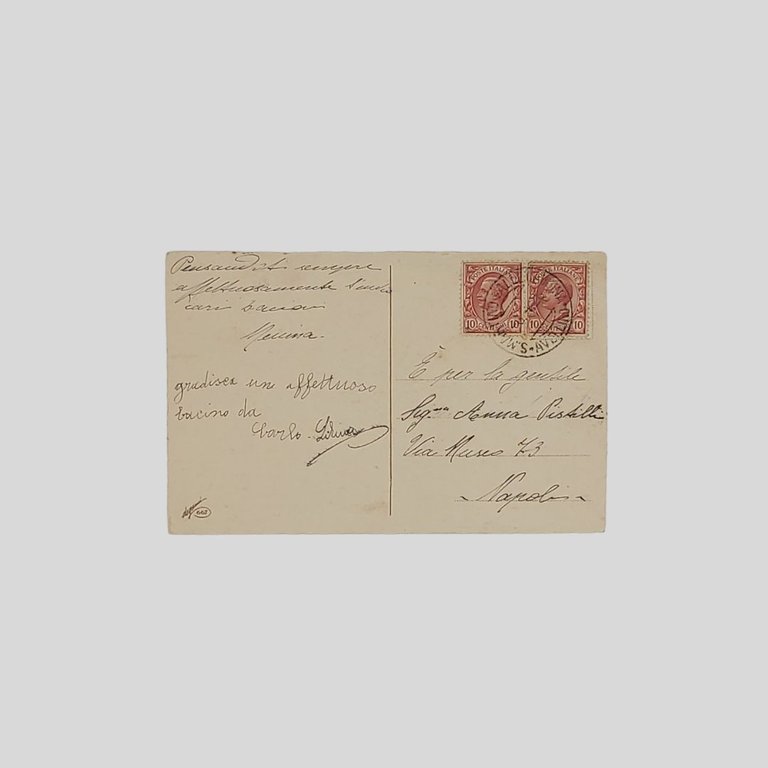 Pensandoti sempre
affettuosamente
cari bacioni
gradisca un affettuoso
bacino da
Carlo
POSTE ITALIANE
POSTE ITALIANE
10 10
10 10
È per la gentile
Sig.na Anna Pistilli
Via Museo 73
Napoli